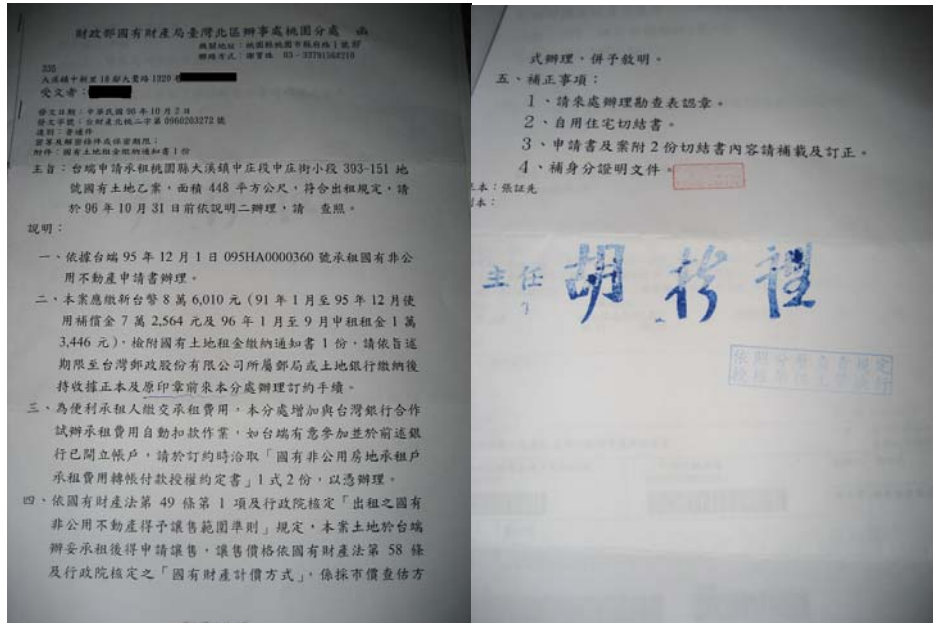 財政部國有財產局臺灣北區辦事處桃園分處 函
機關地址：桃園縣桃園市縣府路1號
聯絡方式：謝寶珠 03-33791568210
335
大溪鎮中新里18鄰大鶯路1320
受文者：
發文日期：中華民國96年10月2日
發文字號：台財產北桃二字第0960203272號
速別：普通件
密等及解密條件或保密期限：
附件：國有土地租金繳納通知書1份
主旨：台端申請承租桃園縣大溪鎮中庄段中庄街小段 393-151 地
號國有土地乙案，面積 448 平方公尺，符合出租規定，請
於 96 年 10 月 31 日前依說明二辦理，請 查照。
說明：
一、依據台端 95 年 12 月 1 日 095HA0000360 號承租國有非公
用不動產申請書辦理。
二、本案應繳新台幣 8 萬 6,010 元（91 年 1 月至 95 年 12 月使
用補償金 7 萬 2,564 元及 96 年 1 月至 9 月申租租金 1 萬
3,446 元），檢附國有土地租金繳納通知書 1 份，請依旨述
期限至台灣郵政股份有限公司所屬郵局或土地銀行繳納後
持收據正本及原印章前來本分處辦理訂約手續。
三、為便利承租人繳交承租費用，本分處增加與台灣銀行合作
試辦承租費用自動扣款作業，如台端有意參加並於前述銀
行已開立帳戶，請於訂約時洽取「國有非公用房地承租戶
承租費用轉帳付款授權約定書」1 式 2 份，以憑辦理。
四、依國有財產法第 49 條第 1 項及行政院核定「出租之國有
非公用不動產得予讓售範圍準則」規定，本案土地於台端
辦妥承租後得申請讓售，讓售價格依國有財產法第 58 條
及行政院核定之「國有財產計價方式」，係採市價查估方
式辦理，併予敘明。
五、補正事項：
1、請來處辦理勘查表認章。
2、自用住宅切結書。
3、申請書及案附2份切結書內容請補載及訂正。
4、補身分證明文件。
本：張証先
本：
主任 胡